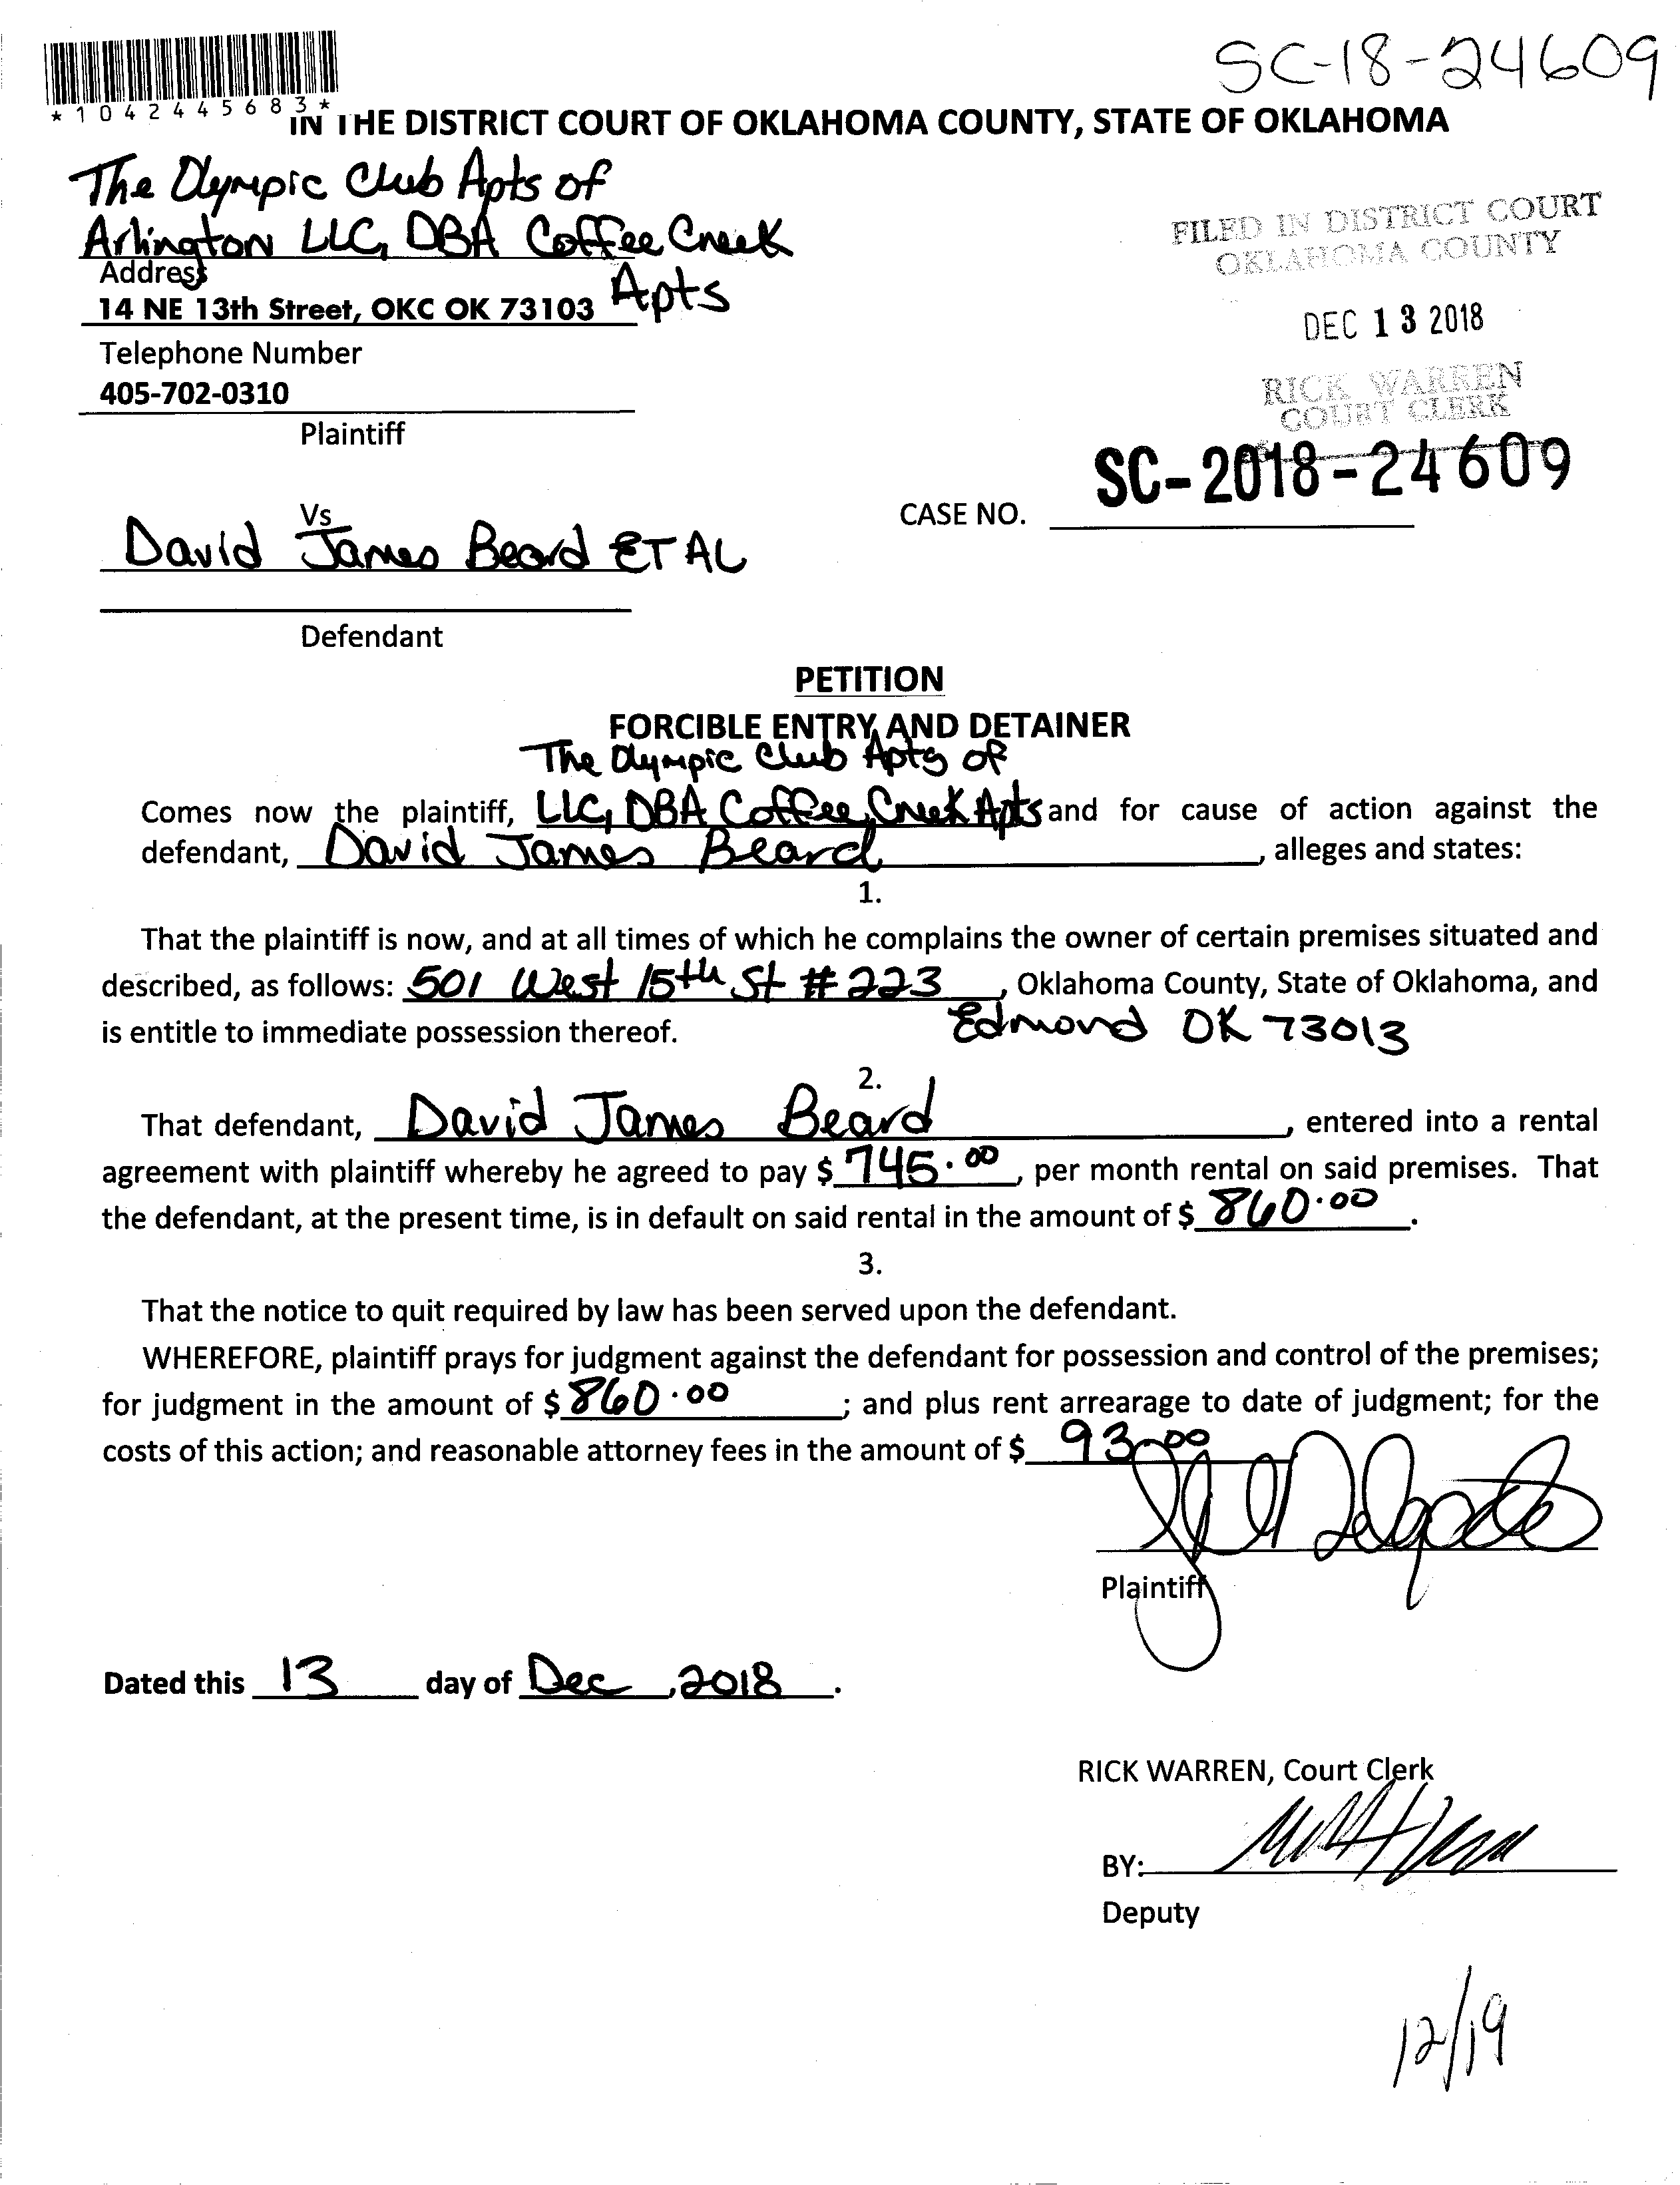 SC-18-24609
*1042445683*
IN THE DISTRICT COURT OF OKLAHOMA COUNTY, STATE OF OKLAHOMA
The Olympic Club Apts of
Arlington LLC, DBA Coffee Creek
Apts
Address
14 NE 13th Street, OKC OK 73103
Telephone Number
405-702-0310
Plaintiff
FILED IN DISTRICT COURT
OKLAHOMA COUNTY
DEC 13 2018
RICK WARREN
COURT CLERK
SC-2018-24609
CASE NO.
Vs
David James Beard ET AL
Defendant
PETITION
FORCIBLE ENTRY AND DETAINER
The Olympic Club Apts of
Comes now the plaintiff, LLC, DBA Coffee Creek Apts and for cause of action against the
defendant, David James Beard, alleges and states:
1.
That the plaintiff is now, and at all times of which he complains the owner of certain premises situated and
described, as follows: 501 West 15th St # 223, Oklahoma County, State of Oklahoma, and
is entitle to immediate possession thereof. Edmond OK 73013
2.
That defendant, David James Beard, entered into a rental
agreement with plaintiff whereby he agreed to pay $ 745.00, per month rental on said premises. That
the defendant, at the present time, is in default on said rental in the amount of $ 860.00.
3.
That the notice to quit required by law has been served upon the defendant.
WHEREFORE, plaintiff prays for judgment against the defendant for possession and control of the premises;
for judgment in the amount of $ 860.00; and plus rent arrearage to date of judgment; for the
costs of this action; and reasonable attorney fees in the amount of $ 93.00
Plaintiff
Dated this 13 day of Dec, 2018.
RICK WARREN, Court Clerk
BY:
Deputy
12/19